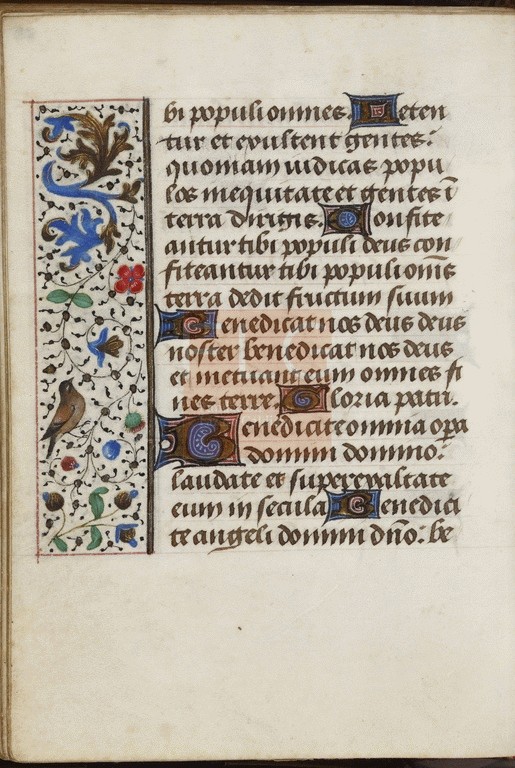 bi populi omnes. Leten
tur et exultent gentes:
quoniam iudicas popu
los in equitate et gentes ī
terra dirigis. Confite
antur tibi populi deus con
fiteantur tibi populi om̄s
terra dedit fructum suum
Benedicat nos deus deus
noster benedicat nos deus
et metuant eum omnes fi
nes terre. Gloria patri.
Benedicite omnia opa
domini domino:
laudate et superexaltate
eum in secula Benedici
te angeli domini dn̄o: be